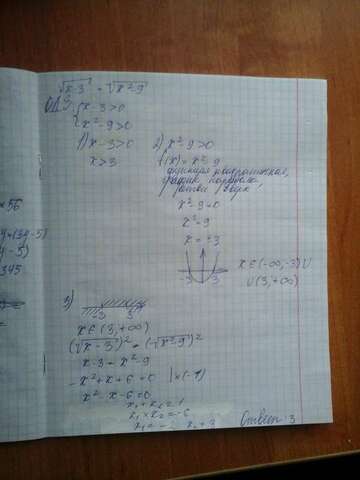 √x-3 = √x²-9
ОДЗ { x-3>0
x²-9>0
1) x-3>0
x>3
2) x²-9>0
f(x)=x²-9
функция квадратичная,
график парабола,
ветви вверх
x²-9=0
x²=9
x=±3
-3 3
x∈(-∞,-3)∪
∪(3,+∞)
3)
-3 3
x∈(3,+∞)
(√x-3)²=(√x²-9)²
x-3=x²-9
-x²+x+6=0 |×(-1)
x²-x-6=0
x₁+x₂=1
x₁×x₂=-6
x₁=-2 x₂=3
Ответ: 3
×56
345